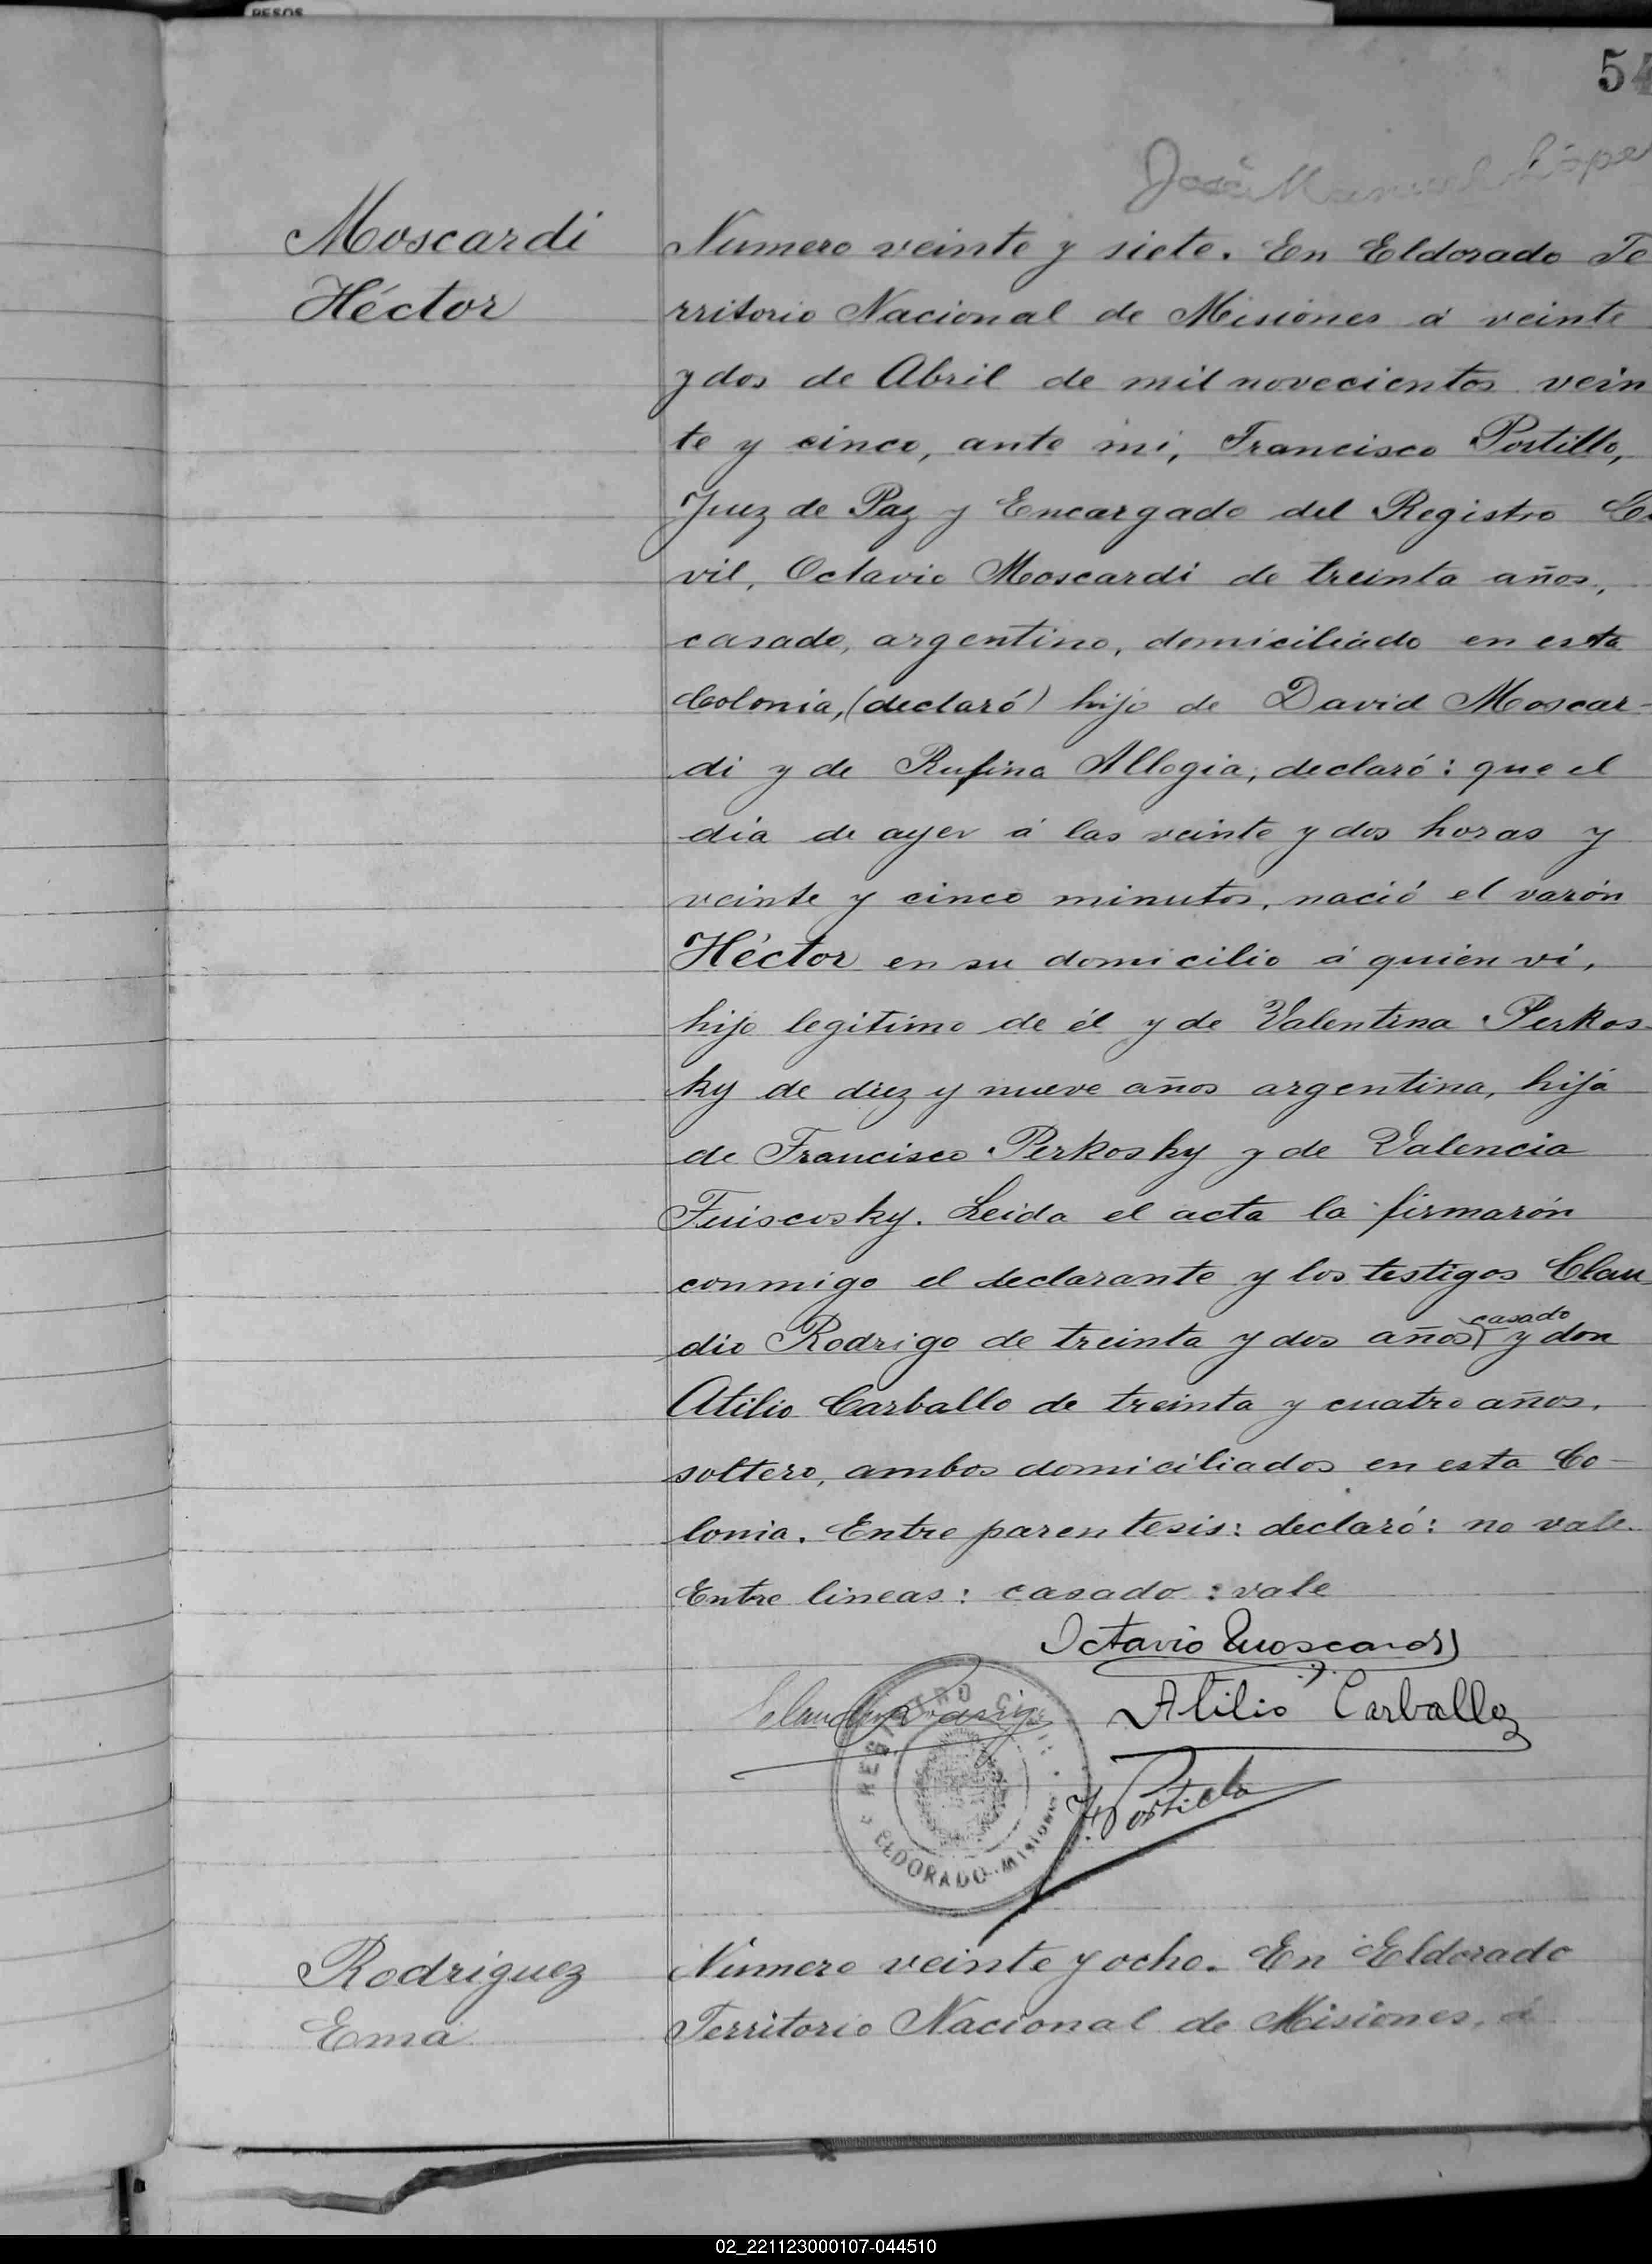 PESOS
54
José Manuel López
Moscardi
Héctor
Número veinte y siete. En Eldorado Te
rritorio Nacional de Misiones á veinte
y dos de Abril de mil novecientos vein
te y cinco, ante mi, Francisco Portillo,
Juez de Paz y Encargado del Registro Ci
vil, Octavio Moscardi de treinta años,
casado, argentino, domiciliado en esta
Colonia, (declaró) hijo de David Moscar-
di y de Rufina Allogia, declaró: que el
dia de ayer á las veinte y dos horas y
veinte y cinco minutos, nació el varón
Héctor en su domicilio á quién ví,
hijo legítimo de él y de Valentina Perkos
ky de diez y nueve años argentina, hija
de Francisco Perkosky y de Valencia
Fuiscosky. Leida el acta la firmarón
conmigo el declarante y los testigos Clau
casado
dio Rodrigo de treinta y dos años y don
Atilio Carballo de treinta y cuatro años,
soltero, ambos domiciliados en esta Co-
lonia. Entre parentesis: declaró: no vale
Entre lineas: casado: vale
Octavio Moscardi
Atilio Carballo
REGISTRO CIVIL
ELDORADO - MISIONES
F. Portillo
Rodriguez
Ema
Número veinte y ocho. En Eldorado
Territorio Nacional de Misiones, á
02_221123000107-044510